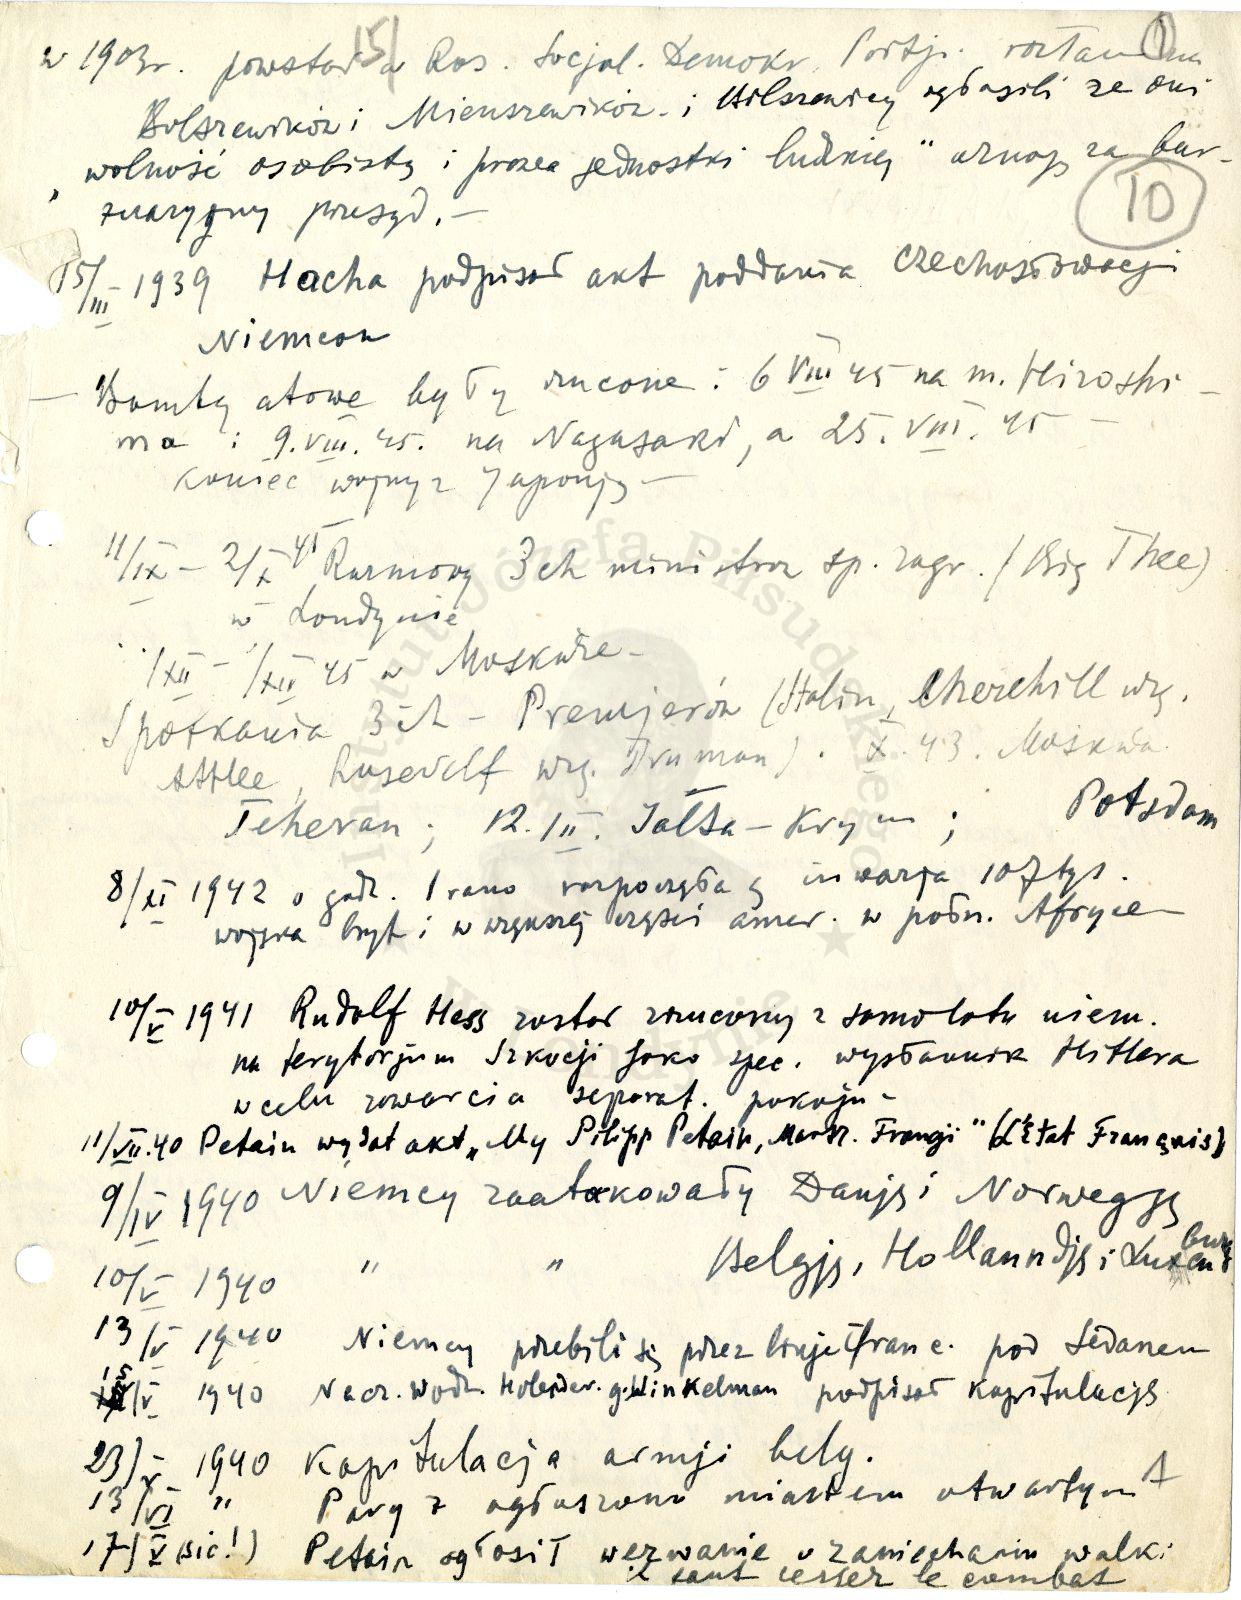 15/ 1
w 1903r. powstał w Ros. Socjal. Demokr. Partji. rozłam na
Bolszewików i Mienszewików. i Bolszewicy ogłosili że oni
"wolność osobistą i prawa jednostki ludzkiej" uznają za bur-
żuazyjny przesąd. —
10
15/III 1939 Hacha podpisał akt poddania Czechosłowacji
Niemcom
— Bomby atowe były rzucone: 6 VIII 45 na m. Hiroshi-
ma i 9.VIII.45. na Nagasaki, a 25.VIII.45 —
koniec wojny z Japonją —
11/IX – 2/X 45 Rozmowy 3ch ministrów sp. zagr. (Big Thee)
w Londynie
/XII – /XII 45 w Moskwie —
Spotkania 3ch – Premjerów (Stalin, Cherchill wzg.
Attlee, Rusevelt wzg. Truman). X.43. Moskwa
Teheran; 12.II. Jałta – Krym; Potsdam
8/XI 1942 o godz. 1 rano rozpoczęła się inwazja 107 tys.
wojska bryt i w większej części amer. w półn. Afryce —
10/V 1941 Rudolf Hess został zrzucony z samolotu niem.
na terytorjum Szkocji jako spec. wysłannik Hitlera
w celu zawarcia separat. pokoju –
11/VII.40 Petain wydał akt „My Pilipp Petain, Marsz. Francji" (L'Etat Français)
9/IV 1940 Niemcy zaatakowały Danję i Norwegję
10/V 1940 " " Belgję, Hollanndję i Luxemburg
13/V 1940 Niemcy przebili się przez linje franc. pod Sedanem
15/V 1940 Nacz. wodz. Holender. g. Winkelman podpisał kapitulację
23/V 1940 Kapitulacja armji belg.
13/VI " Paryż ogłoszono miastem otwartym
17/X (sic!) Petain ogłosił wezwanie o zaniechaniu walki
il faut cesser le combat